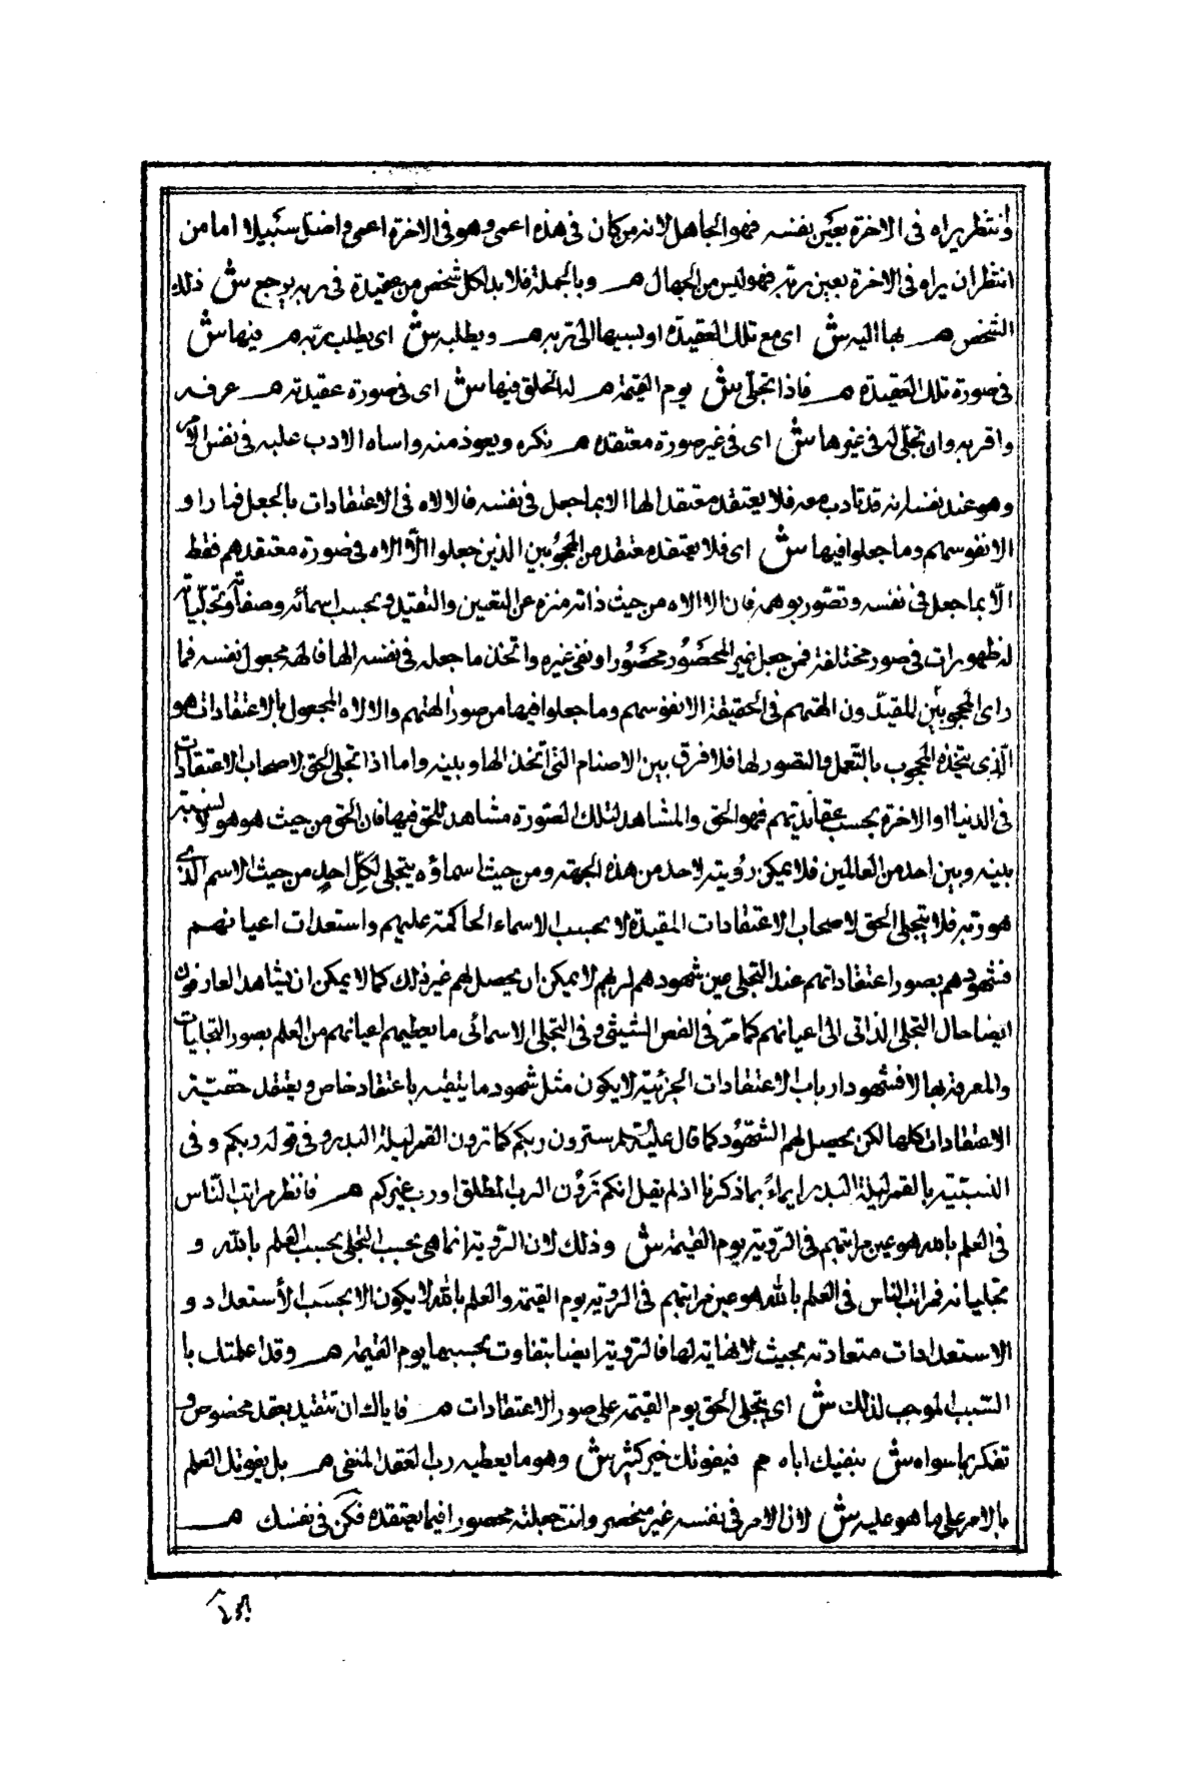 وانتظر يراه فى الاخرة بعين نفسه فهو الجاهل لانه من كان فى هذه اعمى وهو فى الاخرة اعمى واضل سبيلا اما من
انتظر ان يراه فى الاخرة بعين ربه فهو ليس من الجهال هـ وبالجملة فلا بد لكل شخص من عقيدة فى ربه يرجع ش ذلك
الشخص هـ بها اليه ش اى مع تلك العقيدة او بسببها الى ربه هـ ويطلبه ش اى يطلب ربه هـ فيها ش
فى صورة تلك العقيدة هـ فاذا تجلى ش يوم القيمة هـ له الحق فيها ش اى فى صورة عقيدته هـ عرفه
واقر به وان تجلى له فى غيرها ش اى فى غير صورة معتقده هـ نكره ويعوذ منه واساه الادب عليه فى نفس الامر
وهو عند نفسه انه قد تادب معه فلا يعتقد معتقد الها الا بما جعل فى نفسه فالالاه فى الاعتقادات بالجعل فما راو
الا نفوسهم وما جعلوا فيها ش اى فلا يعتقد معتقد من المحجوبين الذين جعلوا الالاه فى صورة معتقدهم فقط
الّا بما جعل فى نفسه وتصوّر بوهمه فان الالاه من حيث ذاته منزه عن التعين والتقيد وبحسب اسمائه وصفاته وتجلياته
له ظهورات فى صور مختلفة فمن جعل غير المحصُور محصُورا ونفى غيره واتخذ ما جعله فى نفسه الها فالهه مجعول نفسه فما
راى المحجوبين المقيدّون الهتهم فى الحقيقة الا نفوسهم وما جعلوا فيها من صور الهتهم والالاه المجعول بالاعتقادات هو
الّذى يتخذه المحجوب بالتّعمل والتصور لها فلا فرق بين الاصنام التى اتخذ الها وبينه واما اذا تجلى الحق لاصحاب الاعتقادات
فى الدنيا او الاخرة بحسب عقائديتهم فهو الحق والمشاهد لتلك الصورة مشاهد للحق فيها فان الحق من حيث هو هو لا نسبة
بينه وبين احد من العالمين فلا يمكن رؤيته لاحد من هذه الجهة ومن حيث اسماؤه يتجلى لكل احد من حيث الاسم الذى
هو ربه فلا يتجلى الحق لاصحاب الاعتقادات المقيدة الا بحسب الاسماء الحاكمة عليهم واستعدات اعيانهم
فشهودهم بصور اعتقاداتهم عند التجلى عين شهودهم لربهم لا يمكن ان يحصل لهم غير ذلك كما لا يمكن ان يشاهد العارفون
ايضا حال التجلى الذاتى الى اعيانهم كما مرّ فى الفص الشيثى وفى التجلى الاسمائى ما يعطيهم اعيانهم من العلم بصور التجليات
والمعرفة بها لا فشهود ارباب الاعتقادات الجزئية لا يكون مثل شهود ما يتقيه باعتقاد خاص ويعتقد حقيّة
الاعتقادات كلها لكن يحصل لهم الشهّود كما قال عليه سترون ربكم كما ترون القمر ليلة البدر وفى قوله ربكم وفى
التشبيه بالقمر ليلة البدر ايماء بما ذكرنا اذ لم يقل انكم ترون الرب المطلق او رب غيركم هـ فانظر مراتب النّاس
فى العلم بالله هو عين مراتبهم فى الرّوية يوم القيمة ش وذلك لان الرّوية انما هى بحسب التجلى بحسب العلم بالله و
تجلياته فمراتب الناس فى العلم بالله هو عين مراتبهم فى الروية يوم القيمة والعلم بالله لا يكون الا بحسب الأستعداد و
الاستعدادات متعادته بحيث لا نهاية لها فالروية ايضا بتفاوت بحسبها يوم القيمة هـ وقد اعلمتك با
السّبب الموجب لذلك ش اى يتجلى الحق يوم القيمة على صور الاعتقادات هـ فاياك ان تتقيد بعقد مخصوص و
تكفر بما سواه ش بنفيك اياه هـ فيفوتك خير كثير ش وهو ما يعطيه رب العقد المنفى هـ بل يفوتك العلم
بالامر على ما هو عليه ش لان الامر فى نفسه غير منحصر وانت جعلته محصورا فيما يعتقده فكن فى نفسك هـ